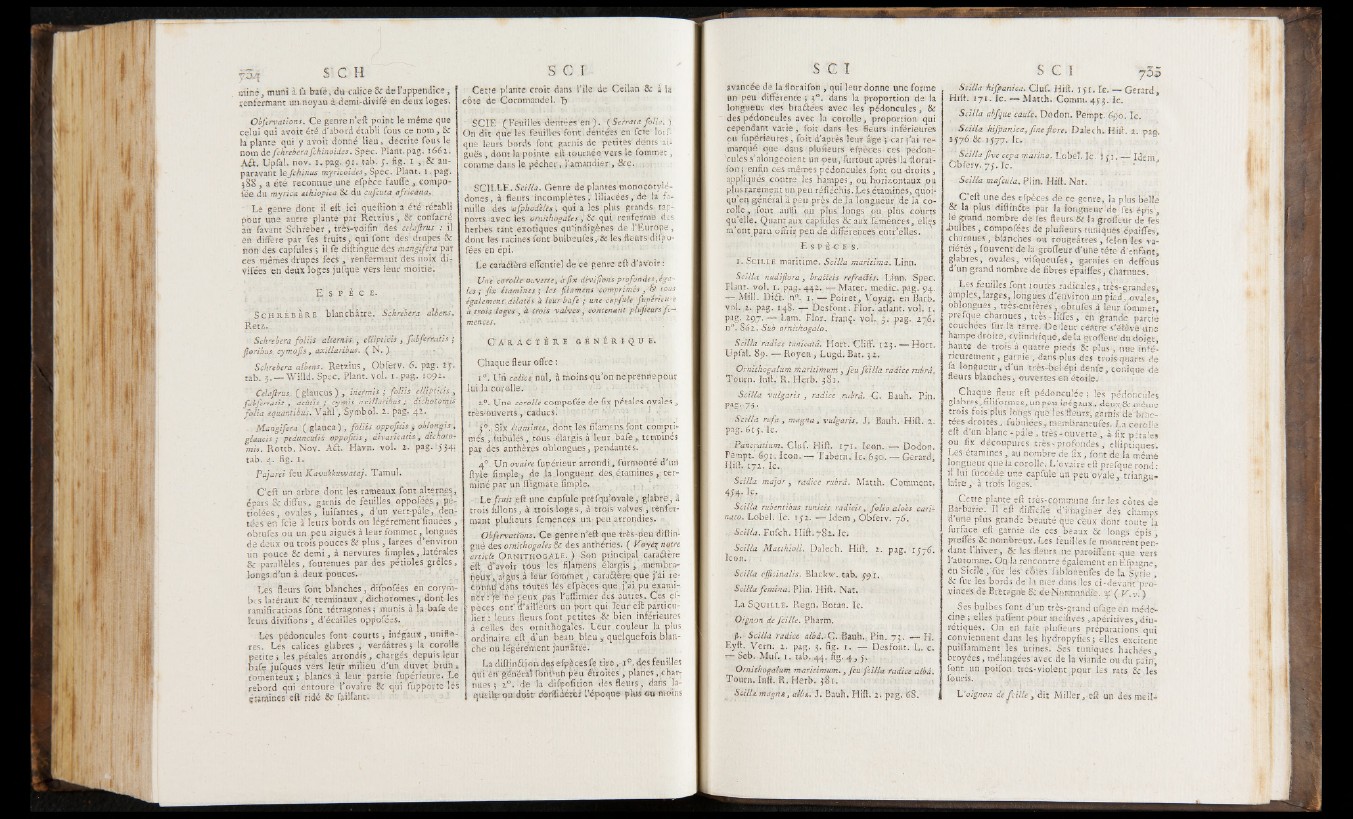 734 S C H
miné, muni à sa base, du calice & de l'appendice,
renfermant un noyau à demi-divisé en deux loges.
Observations. Ce genre n'est point le même que
celui qui avoit été d'abord établi sous ce nom, &
la plante qui y avoit donné lieu, décrite sous le
nom de schrebera schinoides. Spec. Plant. pag. 1662.
Act. Upsal. nov. 1. pag. 91. tab. 5. fig. 1, & au-
paravant le schinus myricoides, Spec. Plant. 1. pag.
388, a été reconnue une espèce fausse, compo-
sée du myrica æthiopica & du cuscuta africana.
Le genre dont il est ici question a été rétabli
pour une autre plante par Retzius, & consacré
au savant Schreber, très-voisin des celastrus : il
en diffère par ses fruits, qui sont des drupes &
non des capsules ; il se distingue des mangifera par
ces mêmes drupes secs, renfermant des noix di-
visées en deux loges jusque vers leur moitié.
E S P È C E.
SCHREBÈRE blanchâtre. Schrebera albens.
Retz.
Schrebera foliis alternis, ellipticis, subserratis ;
floribus cymosis, axillaribus. ( N. )
Schrebera albens. Retzius, Observ. 6. pag. 25.
tab. 3. — Willd. Spec. Plant. vol. 1. pag. 1092.
Celastrus ( glaucus ), inermis ; foliis ellipticis,
subserratis, acutis ; cymis axillaribus, dichotomis
folia æquantibus. Vahl, Symbol. 2. pag. 42.
Mangifera ( glauca ), foliis oppositis, oblongis,
glaucis ; pedunculis oppositis, divaricatis, dichoto-
mis. Rottb. Nov. Act. Havn. vol. 2. pag. 534.
tab. 4. fig. 1.
Pajarei seu Kawukkuwataj. Tamul.
C'est un arbre dont les rameaux sont alternes,
épars & diffus, garnis de feuilles opposées, pé-
tiolées, ovales, luisantes, d'un vert-pâle, den-
tées en scie à leurs bords ou légérement sinuées,
obtuses ou un peu aiguës à leur sommet, longues
de deux ou trois pouces & plus, larges d'environ
un pouce & demi, à nervures simples, latérales
& parallèles, soutenues par des pétioles grêles,
longs d'un à deux pouces.
Les fleurs sont blanches, disposées en corym-
bes latéraux & terminaux, dichotomes, dont les
ramifications sont tétragones ; munis à la base de
leurs divisions, d'écailles opposées.
Les pédoncules sont courts, inégaux, uniflo-
res. Les calices glabres, verdâtres ; la corolle
petite ; les pétales arrondis, chargés depuis leur
base jusques vers leur milieu d'un duvet brun,
tomenteux ; blancs à leur partie supérieure. Le
rebord qui entoure l'ovaire & qui supporte les
étamines est ridé & saillant.
S C I
Cette plante croît dans l'île de Ceilan & à la
côte de Coromandel. ♄
SCIE (Feuilles dentées en). ( Serrata folia. )
On dit que les feuilles sont dentées en scie lors-
que leurs bords sont garnis de petites dents ai-
guës, dont la pointe est tournée vers le sommet,
comme dans le pêcher, l'amandier, &c.
SCILLE. Scilla. Genre de plantes monocotylé-
dones, à fleurs incomplètes, liliacées, de la fa-
mille des asphodèles, qui a les plus grands rap-
ports avec les ornithogales, & qui renferme des
herbes tant exotiques qu'indigènes de l'Europe,
dont les racines sont bulbeuses, & les fleurs dispo-
sées en épi.
Le caractère essentiel de ce genre est d'avoir :
Une corolle ouverte, à six divisions profondes, éga-
les ; six étamines ; les filamens comprimés, & tous
également dilatés à leur base ; une capsule supérieure
à trois loges, à trois valves, contenant plusieurs se-
mences.
C A R A C T È R E G É N É R I Q U E.
Chaque fleur offre :
1°. Un calice nul, à moins qu'on ne prenne pour
lui la corolle.
2°. Une corolle composée de six pétales ovales,
très-ouverts, caducs.
3°. Six étamines, dont les filamens sont compri-
més, subulés, tous élargis à leur base, terminés
par des anthères oblongues, pendantes.
4°. Un ovaire supérieur arrondi, surmonté d'un
style simple, de la longueur des étamines, ter-
miné par un stigmate simple.
Le fruit est une capsule presqu'ovale, glabre, à
trois sillons, à trois loges, à trois valves, renfer-
mant plusieurs semences un peu arrondies.
Observations. Ce genre n'est que très-peu distin-
gué des ornithogales & des anthérics. ( Voyez notre
article ORNITHOGALE. ) Son principal caractère
est d'avoir tous les filamens élargis, membra-
neux, aigus à leur sommet, caractère que j'ai re-
connu dans toutes les espèces que j'ai pu exami-
ner : je ne peux pas l'affirmer des autres. Ces es-
pèces ont d'ailleurs un port qui leur est particu-
lier : leurs fleurs sont petites & bien inférieures
à celles des ornithogales. Leur couleur la plus
ordinaire est d'un beau bleu, quelquefois blan-
che ou légérement jaunâtre.
La distinction des espèces se tire, 1°. des feuilles
qui en général sont un peu étroites, planes, char-
nues ; 2°. de la disposition des fleurs, dans la-
quelle on doit considérer l'époque plus ou moins
S C I
avancée de la floraison, qui leur donne une forme
un peu différente ; 3°. dans la proportion de la
longueur des bractées avec les pédoncules, &
des pédoncules avec la corolle, proportion qui
cependant varie, soit dans les fleurs inférieures
ou supérieures, soit d'après leur âge ; car j'ai re-
marqué que dans plusieurs espèces ces pédon-
cules s'alongeoient un peu, surtout après la florai-
son ; enfin ces mêmes pédoncules sont ou droits,
appliqués contre les hampes, ou horizontaux ou
plus rarement un peu réfléchis. Les étamines, quoi-
qu'en général à peu près de la longueur de la co-
rolle, sont aussi ou plus longs ou plus courts
qu'elle. Quant aux capsules & aux semences, elles
m'ont paru offrir peu de différences entr'elles.
E S P È C E S.
1. SCILLE maritime. Scilla maritima. Linn.
Scilla nudiflora, bracteis refractis. Linn. Spec.
Plant. vol. 1. pag. 442. — Mater. medic. pag. 94.
— Mill. Dict. n°. 1. — Poiret, Voyag. en Barb.
vol. 2. pag. 148. — Desfont. Flor. atlant. vol. 1.
pag. 297. — Lam. Flor. franç. vol. 3. pag. 276.
n°. 862. Sub ornithogalo.
Scilla radice tunicatâ. Hort. Cliff. 123. — Hort.
Upsal. 89. — Royen, Lugd. Bat. 32.
Ornithogalum maritimum, seu scilla radice rubrâ.
Tourn. Inst. R. Herb. 381.
Scilla vulgaris, radice rubrâ. C. Bauh. Pin.
pag. 73.
Scilla rufa, magna, vulgaris. J. Bauh. Hist. 2.
pag. 615. Ic.
Pancratium. Clus. Hist. 171. Icon. — Dodon.
Pempt. 691. Icon. — Tabern. Ic. 630. — Gerard,
Hist. 172. Ic.
Scilla major, radice rubrâ. Matth. Comment.
454. Ic.
Scilla rubentibus tunicis radicis, folio aloës cari-
nato. Lobel. Ic. 152. — Idem, Observ. 76.
Scilla. Fusch. Hist. 782. Ic.
Scilla Matthioli. Dalech. Hist. 2. pag. 1576.
Icon.
Scilla officinalis. Blackw. tab. 591.
Scilla femina. Plin. Hist. Nat.
La SQUILLE. Regn. Botan. Ic.
Oignon de scille. Pharm.
β. Scilla radice albâ. C. Bauh. Pin. 73. — H.
Eyst. Vern. 2. pag. 5. fig. 1. — Desfont. L. c.
— Seb. Mus. 1. tab. 44. fig. 4, 5.
Ornithogalum maritimum, seu scilla radice albâ.
Tourn. Inst. R. Herb. 381.
Scilla magna, alba. J. Bauh. Hist. 2. pag. 68.
S C I 735
Scilla hispanica. Clus. Hist. 151. Ic. — Gerard,
Hist. 171. Ic. — Matth. Comm. 453. Ic.
Scilla absque caule. Dodon. Pempt. 690. Ic.
Scilla hispanica, sine flore. Dalech. Hist. 2. pag.
1576 & 1577. Ic.
Scilla sive cepa marina. Lobel. Ic. 151. — Idem,
Observ. 75. Ic.
Scilla mascula. Plin. Hist. Nat.
C'est une des espèces de ce genre, la plus belle
& la plus distincte par la longueur de ses épis,
le grand nombre de ses fleurs & la grosseur de ses
bulbes, composées de plusieurs tuniques épaisses,
charnues, blanches ou rougeâtres, selon les va-
riétés, souvent de la grosseur d'une tête d'enfant,
glabres, ovales, visqueuses, garnies en dessous
d'un grand nombre de fibres épaisses, charnues.
Les feuilles sont toutes radicales, très-grandes,
amples, larges, longues d'environ un pied, ovales,
oblongues, très-entières, obtuses à leur sommet,
presque charnues, très-lisses, en grande partie
couchées sur la terre. De leur centre s'élève une
hampe droite, cylindrique, de la grosseur du doigt,
haute de trois à quatre pieds & plus, nue infé-
rieurement, garnie, dans plus des trois quarts de
sa longueur, d'un très-bel épi dense, conique de
fleurs blanches, ouvertes en étoile.
Chaque fleur est pédonculée ; les pédoncules
glabres, filiformes, un peu inégaux, deux & même
trois fois plus longs que les fleurs, garnis de brac-
tées droites, subulées, membraneuses. La corolle
est d'un blanc-pâle, très-ouverte, à six pétales
ou six découpures très-profondes, elliptiques.
Les étamines, au nombre de six, sont de la même
longueur que la corolle. L'ovaire est presque rond :
il lui succède une capsule un peu ovale, triangu-
laire, à trois loges.
Cette plante est très-commune sur les côtes de
Barbarie. Il est difficile d'imaginer des champs
d'une plus grande beauté que ceux dont toute la
surface est garnie de ces beaux & longs épis,
pressés & nombreux. Les feuilles se montrent pen-
dant l'hiver, & les fleurs ne paroissent que vers
l'automne. On la rencontre également en Espagne,
en Sicile, sur les côtes sablonneuses de la Syrie,
& sur les bords de la mer dans les ci-devant pro-
vinces de Bretagne & de Normandie. ♃ ( V. v. )
Ses bulbes sont d'un très-grand usage en méde-
cine ; elles passent pour incisives, apéritives, diu-
rétiques. On en fait plusieurs préparations qui
conviennent dans les hydropysies ; elles excitent
puissamment les urines. Ses tuniques hachées,
broyées, mélangées avec de la viande ou du pain,
sont un poison très-violent pour les rats & les
souris.
L'oignon de scille, dit Miller, est un des meil-